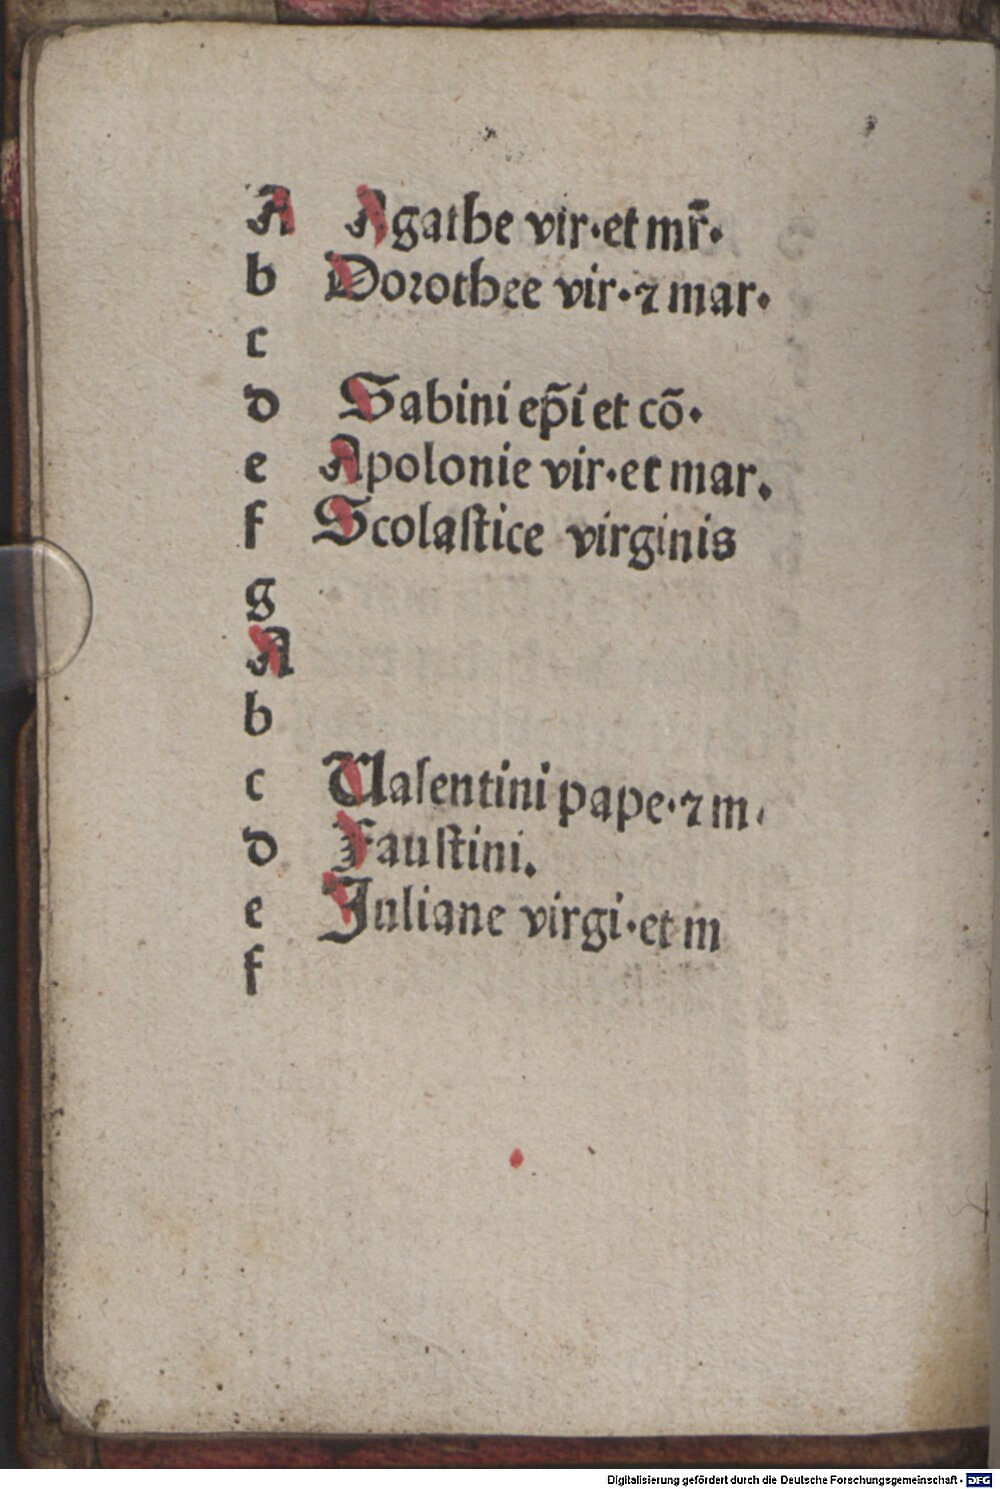 A Agathe vir·et mr̄·
b Dorothee vir·⁊ mar·
c
d Sabini ep̄i et cō·
e Apolonie vir·et mar.
f Scolaſtice virginis
g
A
b
c Ualentini pape·⁊ m·
d Fauſtini.
e Juliane virgi·et m
f
Digitalisierung gefördert durch die Deutsche Forschungsgemeinschaft - DFG